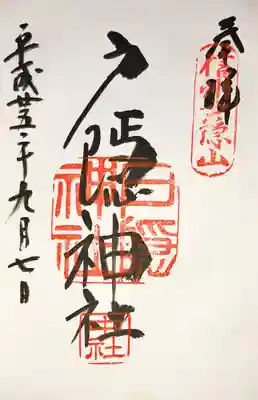 奉拝
戸隠神社
戸隠神社
平成廿五年九月七日